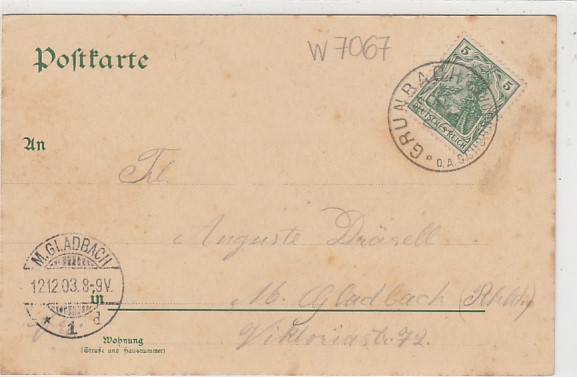 W 7067
Postkarte
5 5
DEUTSCHES REICH
GRUNBACH
O.A. SCHORN
An
Frl.
Auguste
M. Gladbach (Rhld)
in
Viktoriastr. 72.
M. GLADBACH
12.12.03. 8-9V.
* 1 d
Wohnung
(Straße und Hausnummer)